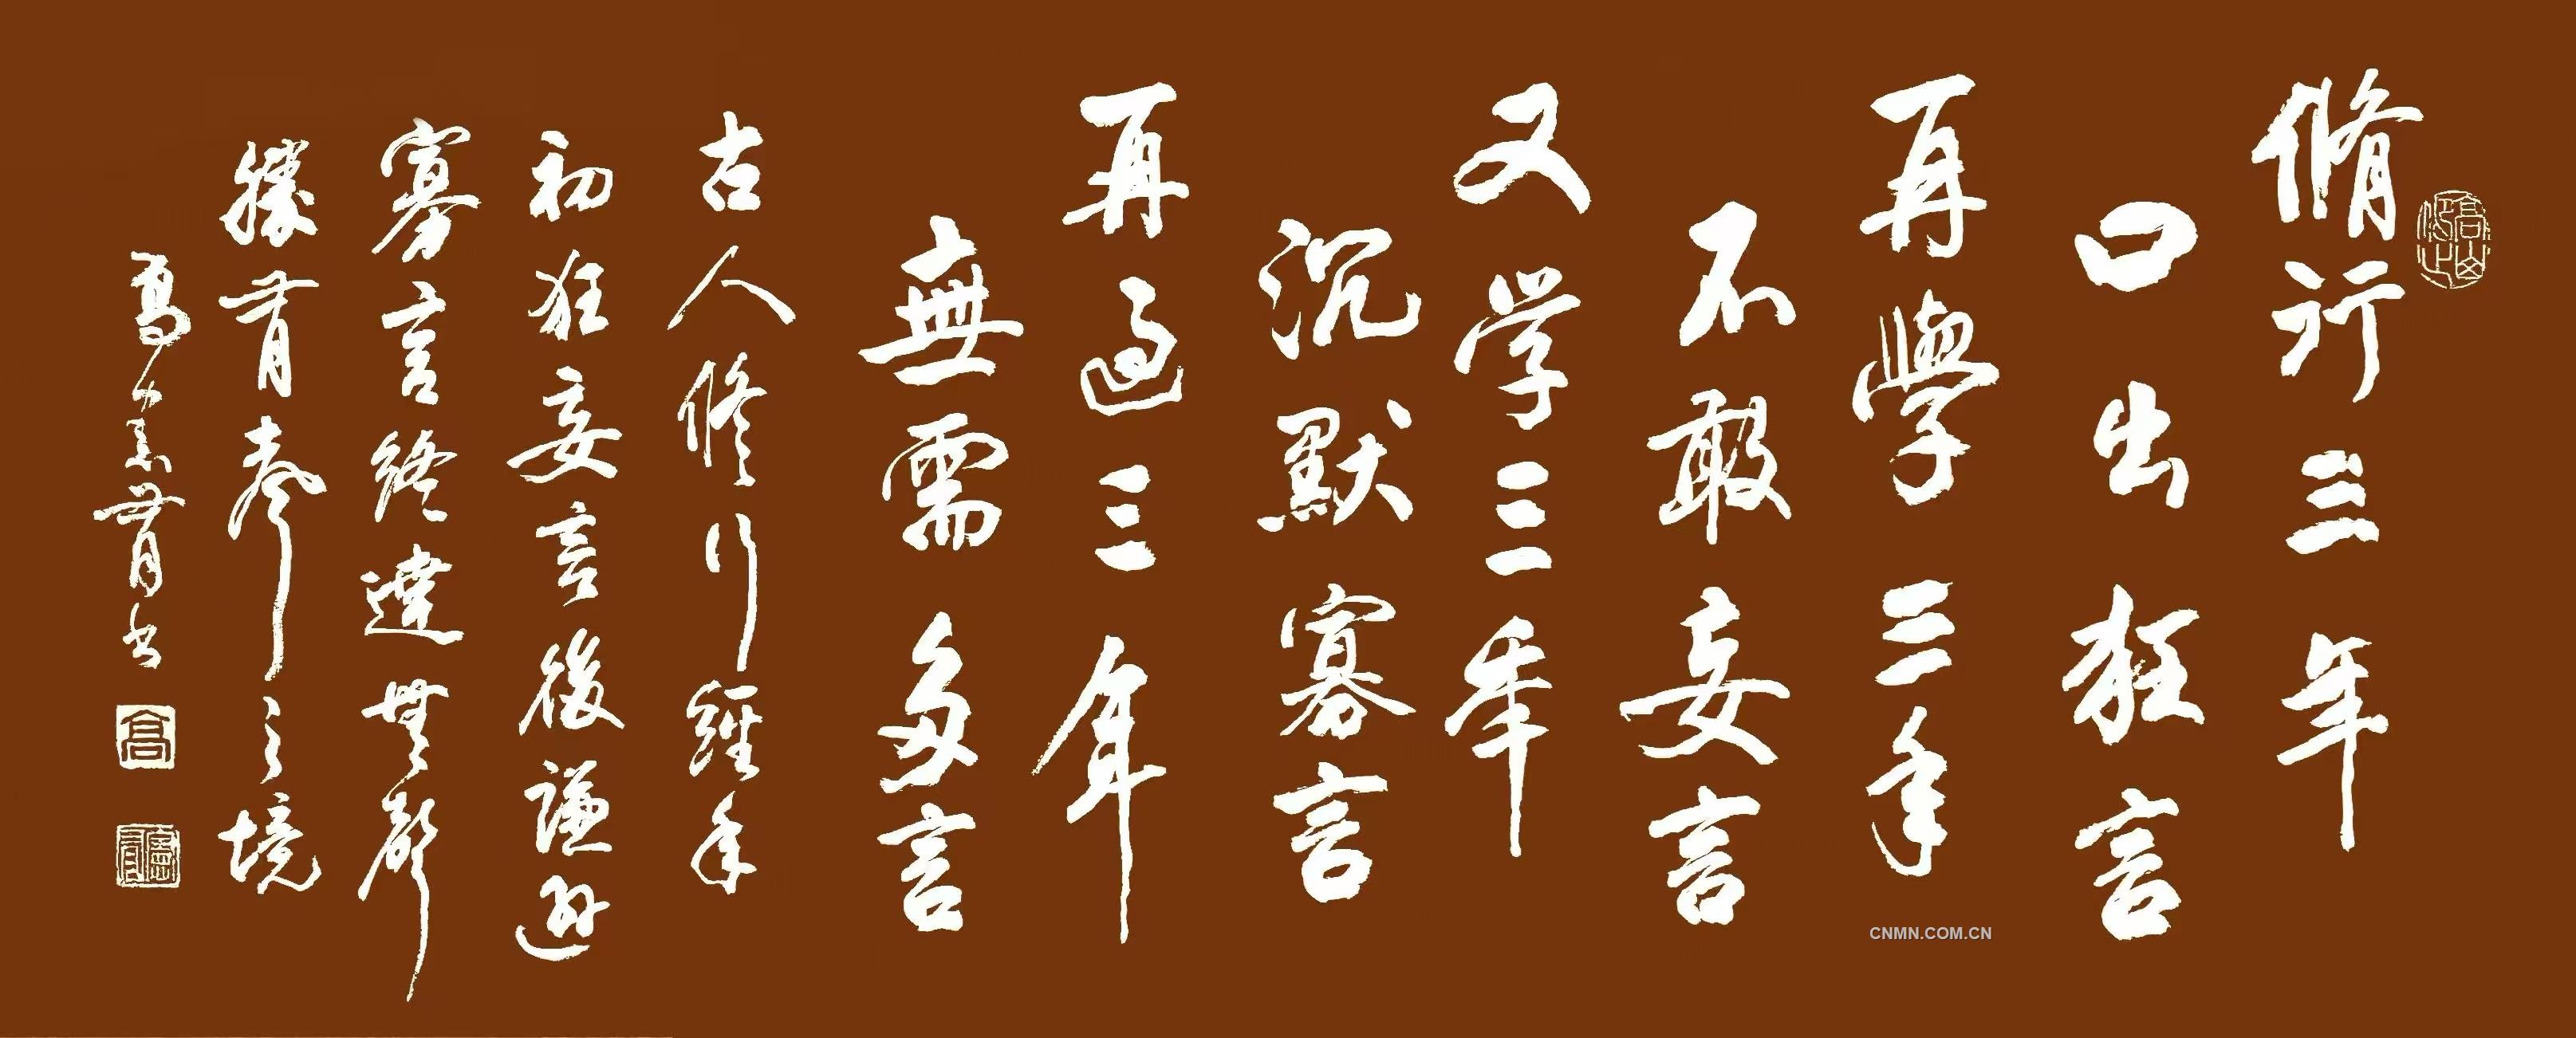 脩行三年
口出狂言
再學三年
不敢妄言
又学三年
沉默寡言
再過三年
無需多言
古人修行經年
初狂妄言後謙遜
寡言終達無聲
勝有聲之境
高憲青书
高
CNMN.COM.CN